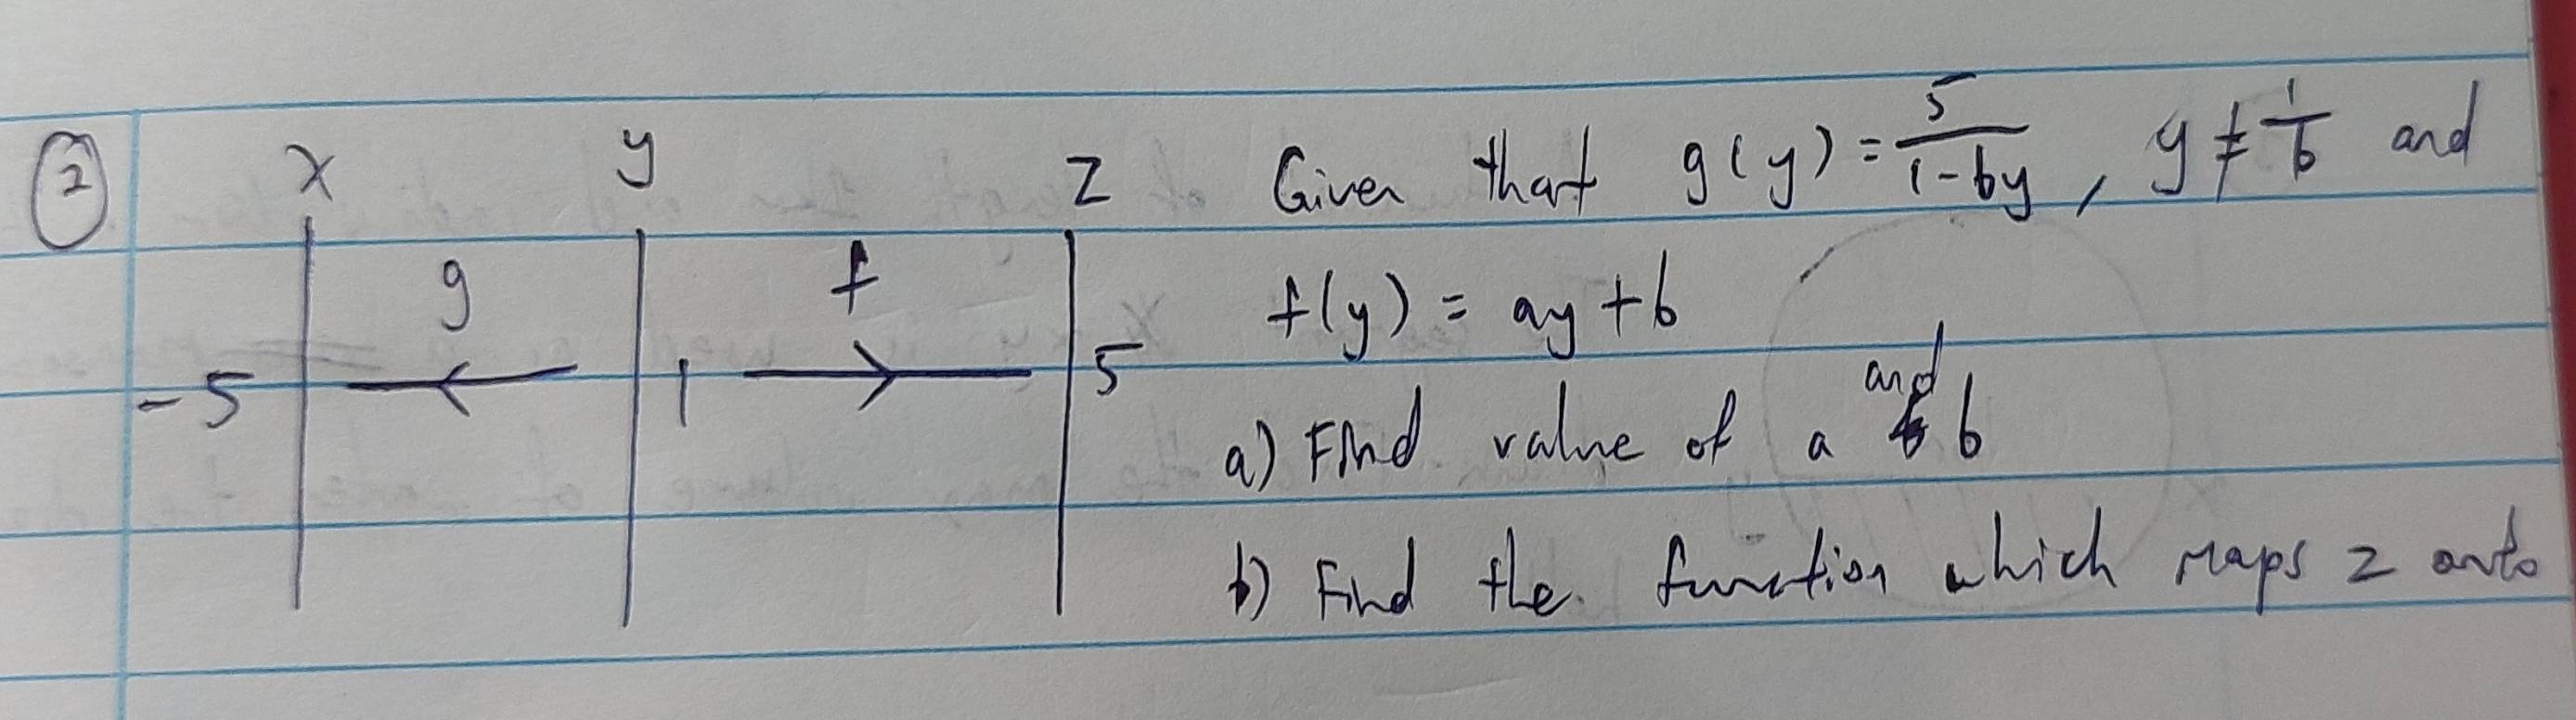 ② x y z Given that g(y) = 5/(1-by), y ≠ 1/b and
g f f(y) = ay + b
-5 1 5
a) Find value of a and b
b) Find the function which maps z onto